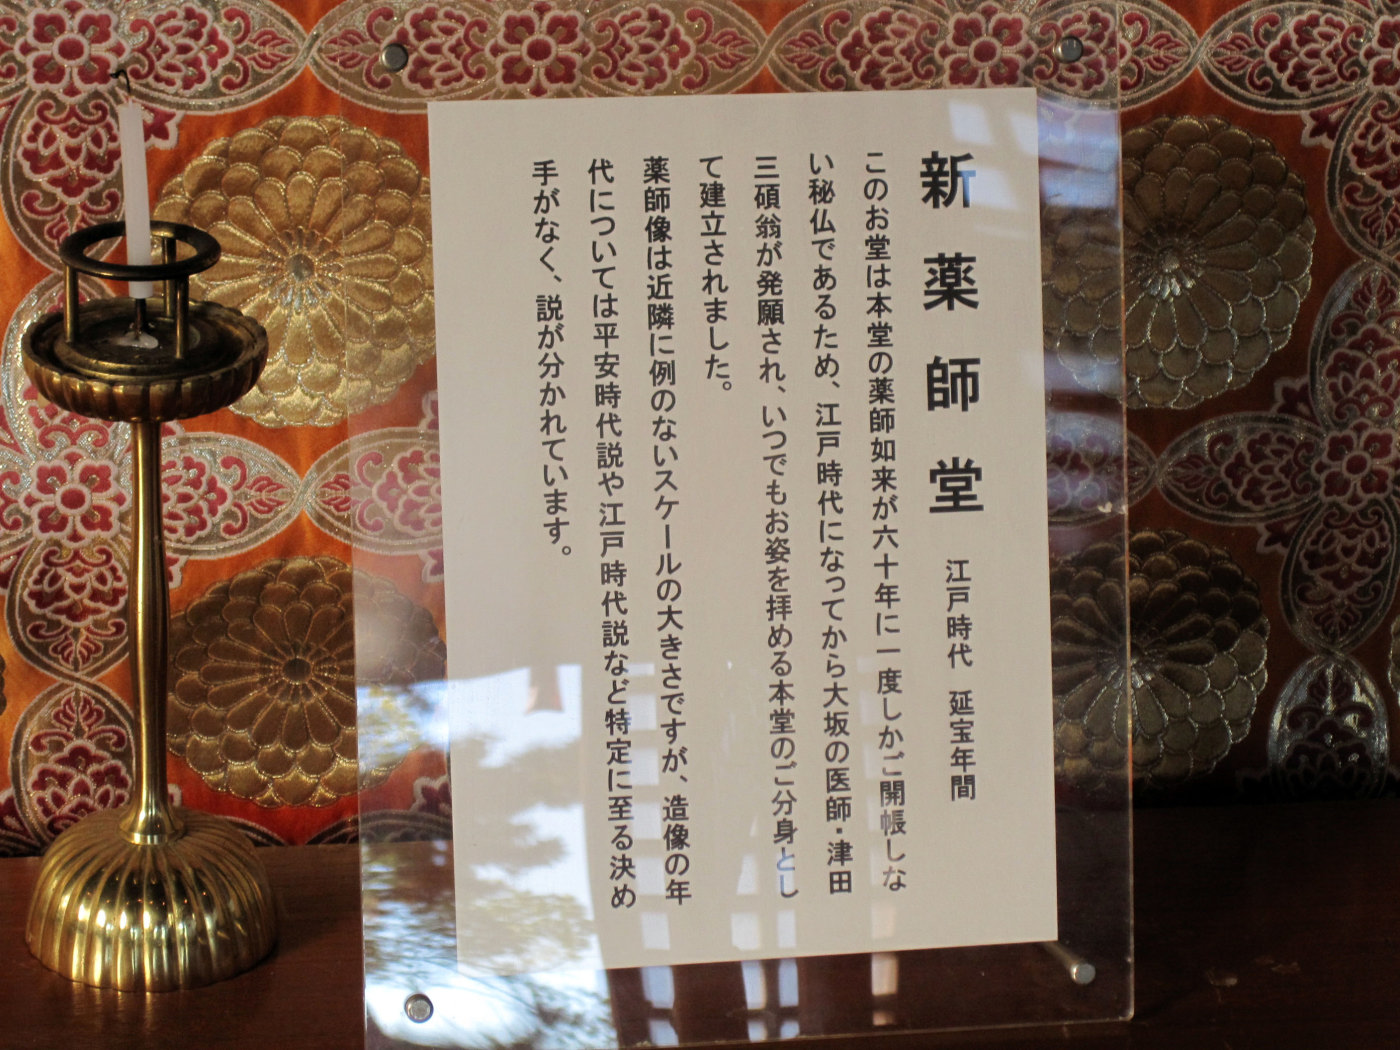 新薬師堂 江戸時代 延宝年間
このお堂は本堂の薬師如来が六十年に一度しかご開帳しな
い秘仏であるため、江戸時代になってから大坂の医師・津田
三碩翁が発願され、いつでもお姿を拝める本堂のご分身とし
て建立されました。
薬師像は近隣に例のないスケールの大きさですが、造像の年
代については平安時代説や江戸時代説など特定に至る決め
手がなく、説が分かれています。